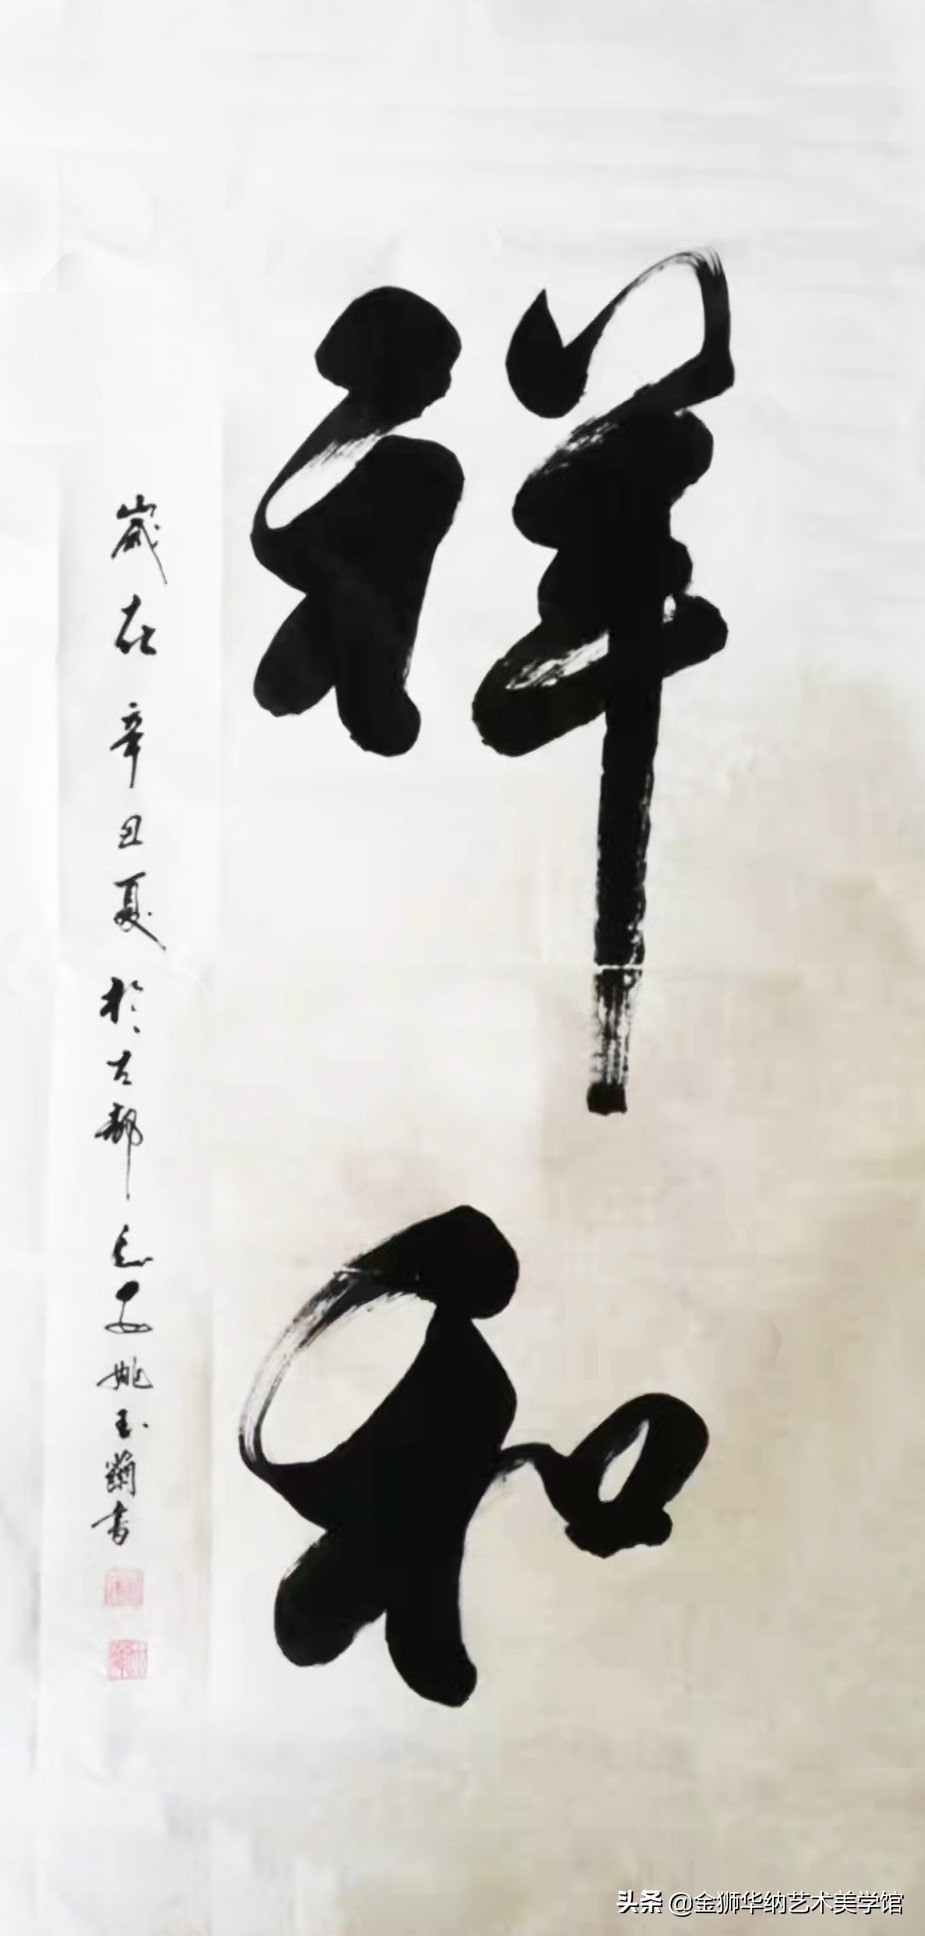 祥和
歲在辛丑夏於古都長安姚玉蘭書
头条 @金狮华纳艺术美学馆